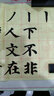 丨下不非
丿人文在